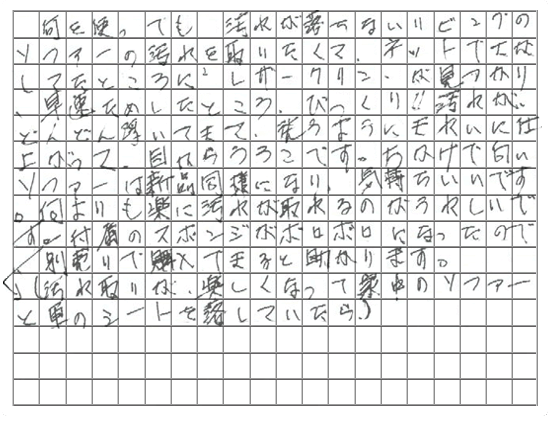 何を使っても、汚れが落ちないリビングの
ソファーの汚れを取りたくて、ネットでさが
してたところに、レザークリン、が見つかり
、早速ためしたところ、びっくり!!汚れが、
どんどん浮いてきて、見ちようにきれいに仕
上がって、目からうろこです。おかげで白い
ソファーは新品同様になり、気持ちいいです
。何よりも楽に汚れが取れるのがうれしいで
す。付属のスポンジがボロボロになったので
別売りで購入できると助かります。
(汚れ取りが、楽しくなって家中のソファー
と車のシートを落していたら。)